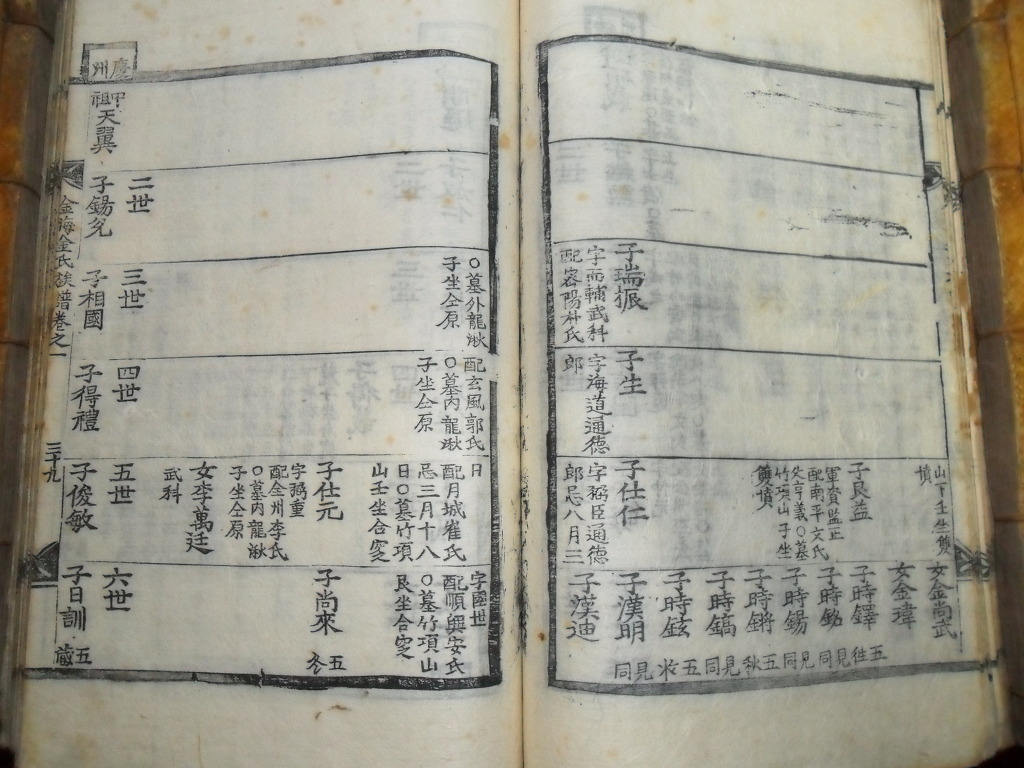 子瑞振
字而輔武科
配密陽朴氏
子生
字海道通德
郎
山下壬坐雙
墳
子良益
軍資監正
配南平文氏
○墓
竹項山子坐
雙墳
子仕仁
字稱臣通德
郎忌八月三
女金尚武
女金瑋
子時鐸
五往
子時銘
見同
子時錫
見同
子時鏘
五秋
子時鎬
見同
子時鉉
五收
子漢明
見同
子漢迪
慶州
中祖天翼
○墓外龍湫
子坐仝原
二世
子錫允
三世
子相國
配玄風郭氏
○墓內龍湫
子坐仝原
四世
子得禮
日
配月城崔氏
忌三月十八
日○墓竹項
山壬坐合窆
子仕元
字稱重
配全州李氏
○墓內龍湫
子坐仝原
女李萬廷
武科
五世
子俊敏
字國世
配順興安氏
○墓竹項山
艮坐合窆
子尚來
六世
子日訓
五歲
金海金氏族譜卷之一
三十九